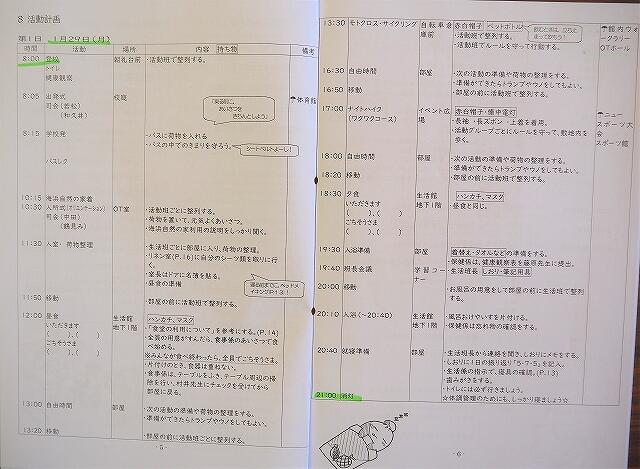 8 活動計画
第1日 1月29日(月)
時間 活動 場所 内容 持ち物 備考
8:00 登校 朝礼台前 ・活動班で整列する。
トイレ
健康観察
8:05 出発式 校庭 ☂体育館
司会(若松)
(和久井)
きちんとしよう」
8:15 学校発 ・バスに荷物を入れる
・バスの中でのきまりを守ろう。
シートベルトよーし!
バスレク
10:15 海浜自然の家着
10:30 入所式(オリエンテーション) OT室 ・活動班ごとに整列する。
司会(中田) ・荷物を置いて、元気よくあいさつ。
(鶴見み) ・海浜自然の家利用の説明をしっかり聞く。
11:30 入室・荷物整理 ・生活班ごとに部屋に入り、荷物の整理。
・リネン室(P.16)に自分のシーツ類を取りに行く。
・室長はドアに名簿を貼る。
・昼食の準備
11:50 移動 ・部屋の前に活動班で整列する。
12:00 昼食 生活館 ハンカチ、マスク
いただきます 地下1階 ・「食堂の利用について」を参考にする。(P.14)
( )、( ) ・全員の用意がすんだら、食事係のあいさつで食べ始める。
ごちそうさま ※みんなが食べ終わったら、全員でごちそうさま。
( )、( ) ・片付けのとき、食器は重ねない。
・食事係は、テーブルをふき、テーブル周辺の掃除を行い、村井先生にチェックを受けてから部屋に戻る。
13:00 自由時間 部屋 ・次の活動の準備や荷物の整理をする。
・準備ができたらトランプやウノをしてもよい。
13:20 移動 ・部屋の前に活動班ごとに整列する。
- 5 -
13:30 モトクロス・サイクリング 自転車倉庫前 赤白帽子・ペットボトル ☂館内ウォークラリー
・活動班で整列する。 OTホール
・活動班でルールを守って行動する。
飲むときは、立ち止まって飲もう!
16:30 自由時間 部屋 ・次の活動の準備や荷物の整理をする。
・準備ができたらトランプやウノをしてもよい。
16:50 移動 ・部屋の前に活動班で整列する。
17:00 ナイトハイク イベント広場 赤白帽子・懐中電灯 ☂ニュースポーツ大会
(ワクワクコース) ・長袖・長ズボン・上着を着用。 スポーツ館
・活動グループごとにルールを守って、敷地内を歩く。
18:00 自由時間 部屋 ・次の活動の準備や荷物の整理をする。
・準備ができたらトランプやウノをしてもよい。
18:20 移動 ・部屋の前に活動班で整列する。
18:30 夕食 生活館 ハンカチ、マスク
いただきます 地下1階 ・昼食と同じ。
( )、( )
ごちそうさま
( )、( )
19:30 入浴準備 部屋 着替え・タオルなどの準備をする。
・保健係は、健康観察表を藤原先生に提出。
19:40 班長会議 学習コーナー ・生活班長 しおり・筆記用具
20:00 移動 ・お風呂の用意をして部屋の前に生活班で整列する。
20:10 入浴(~20:40) 生活館 ・風呂おけやいすを片付ける。
地下1階 ・保健係は忘れ物の確認をする。
20:40 就寝準備 部屋 ・生活班長から連絡を聞き、しおりにメモをする。
・しおりに1日の振り返り「5-7-5」を記入。
・生活係の指示で、寝具の確認。(P.13)
・歯みがきをする。
・トイレには必ず行きましょう。
21:00 消灯 ☆体調管理のためにも、しっかり寝ましょう☆
- 6 -